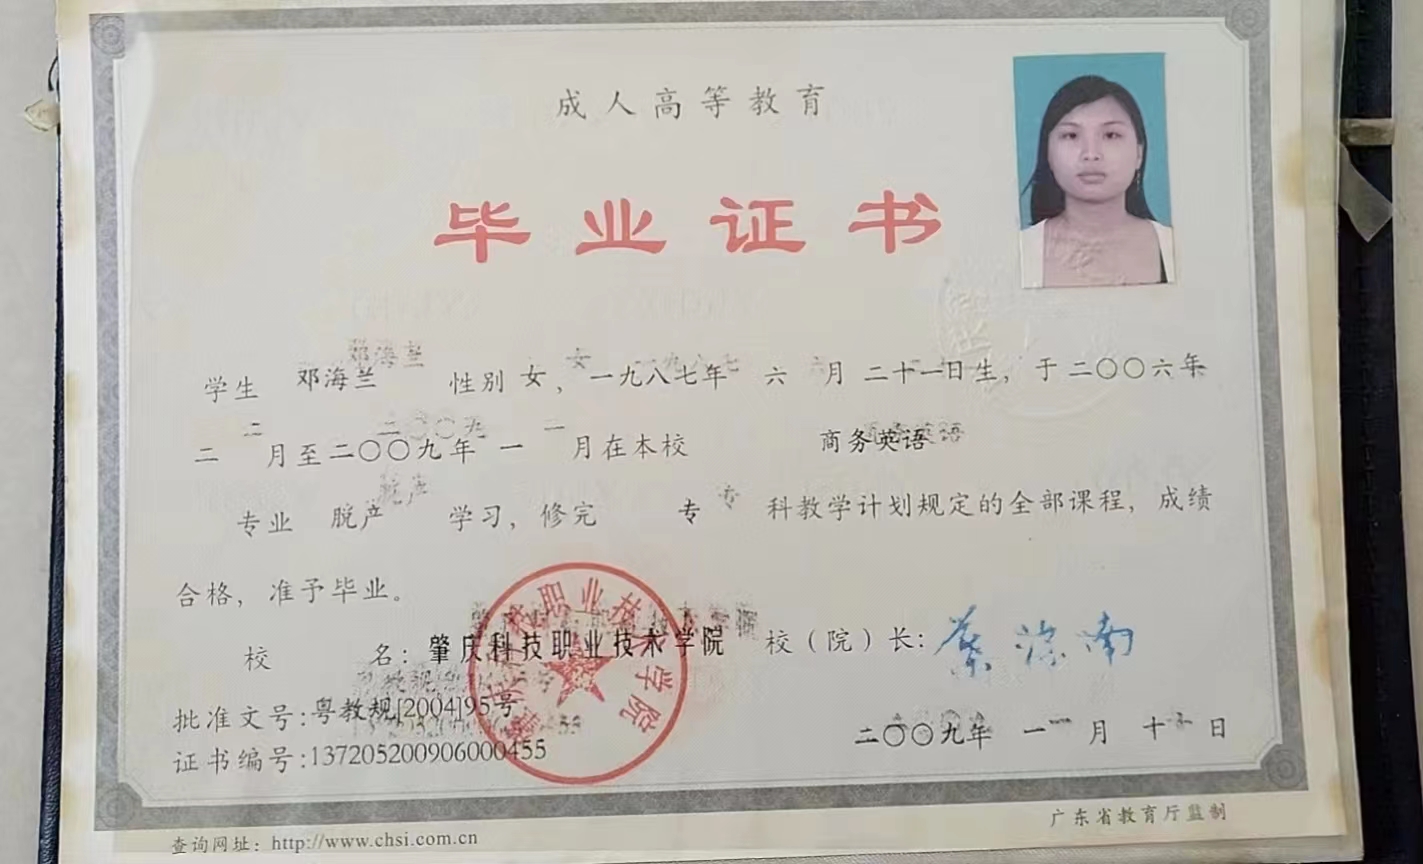 成人高等教育
毕业证书
学生 邓海兰 性别 女、一九八七年 六 月 二十一日生，于二〇〇六年
二 月至二〇〇九年 一 月在本校 商务英语
专业 脱产 学习，修完 专 科教学计划规定的全部课程，成绩
合格，准予毕业。
校 名：肇庆科技职业技术学院 校（院）长：
批准文号：粤教规[2004]95号
证书编号：137205200906000455
二〇〇九年 一 月 十 日
查询网址：http://www.chsi.com.cn
广东省教育厅监制